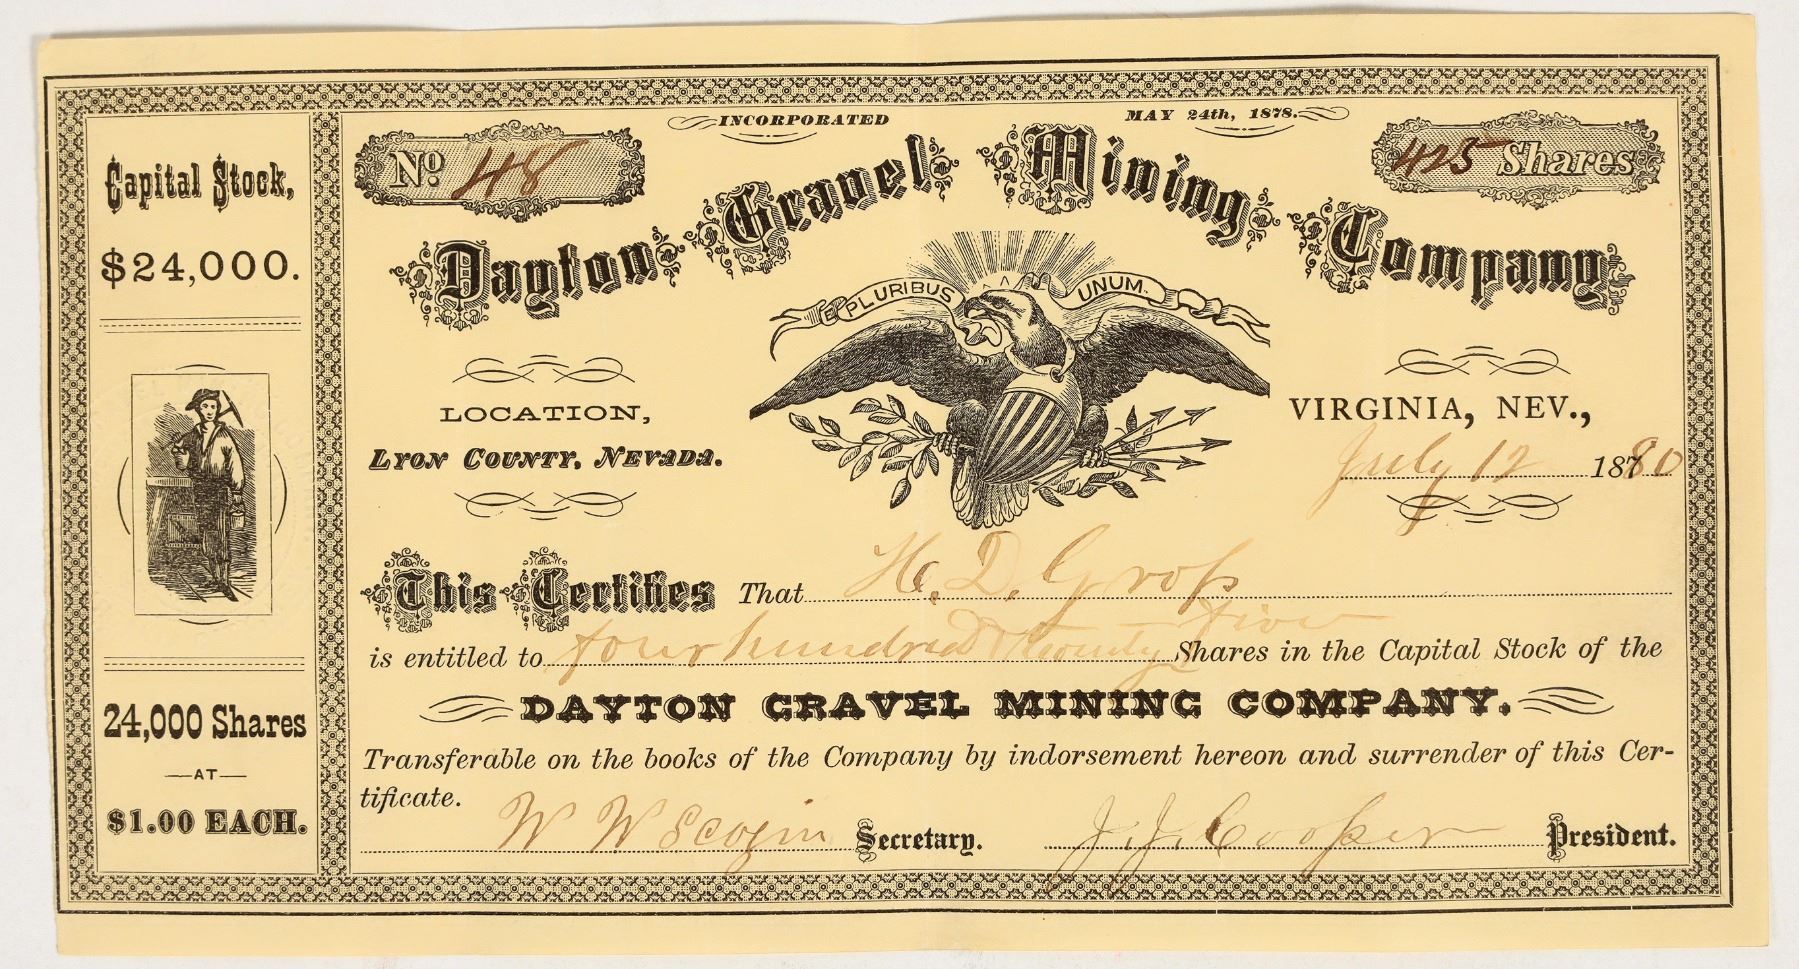 Capital Stock,
$24,000.
24,000 Shares
—AT—
$1.00 EACH.
INCORPORATED MAY 24th, 1878.
No. 48
425 Shares
Dayton Gravel Mining Company
E PLURIBUS UNUM.
LOCATION,
LYON COUNTY, NEVADA.
VIRGINIA, NEV.,
July 12 1880
This Certifies That H. D. Gross
is entitled to four hundred & twenty five Shares in the Capital Stock of the
DAYTON GRAVEL MINING COMPANY.
Transferable on the books of the Company by indorsement hereon and surrender of this Cer-
tificate.
W W Scogin Secretary. J. J. Cooper President.